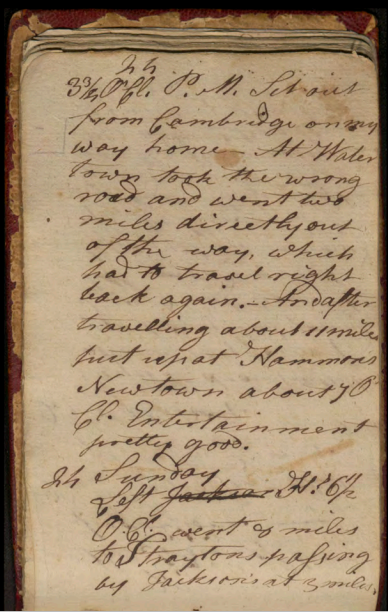 24
3 3/4 O'Cl. P. M. Set out
from Cambridge on my
way home - At Water
town took the wrong
road and went two
miles directly out
of the way, which
had to travel right
back again. - And after
travelling about 11 miles
put up at Hammons
Newtown about 7 O
Cl. Entertainment
pretty good.
24 Sunday
Left Jackson H's 6 1/2
O.Cl. went 8 miles
to Straytons passing
by Jackson's at 3 miles.